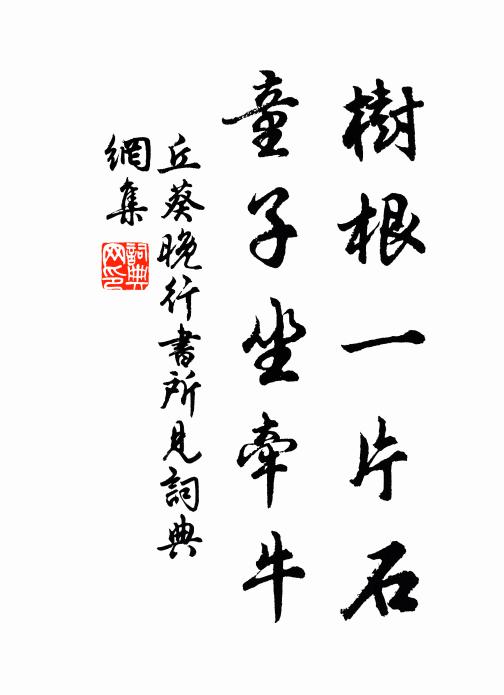 樹根一片石
童子坐牽牛
丘葵晚行書所見詞典
網集
詞典
网印